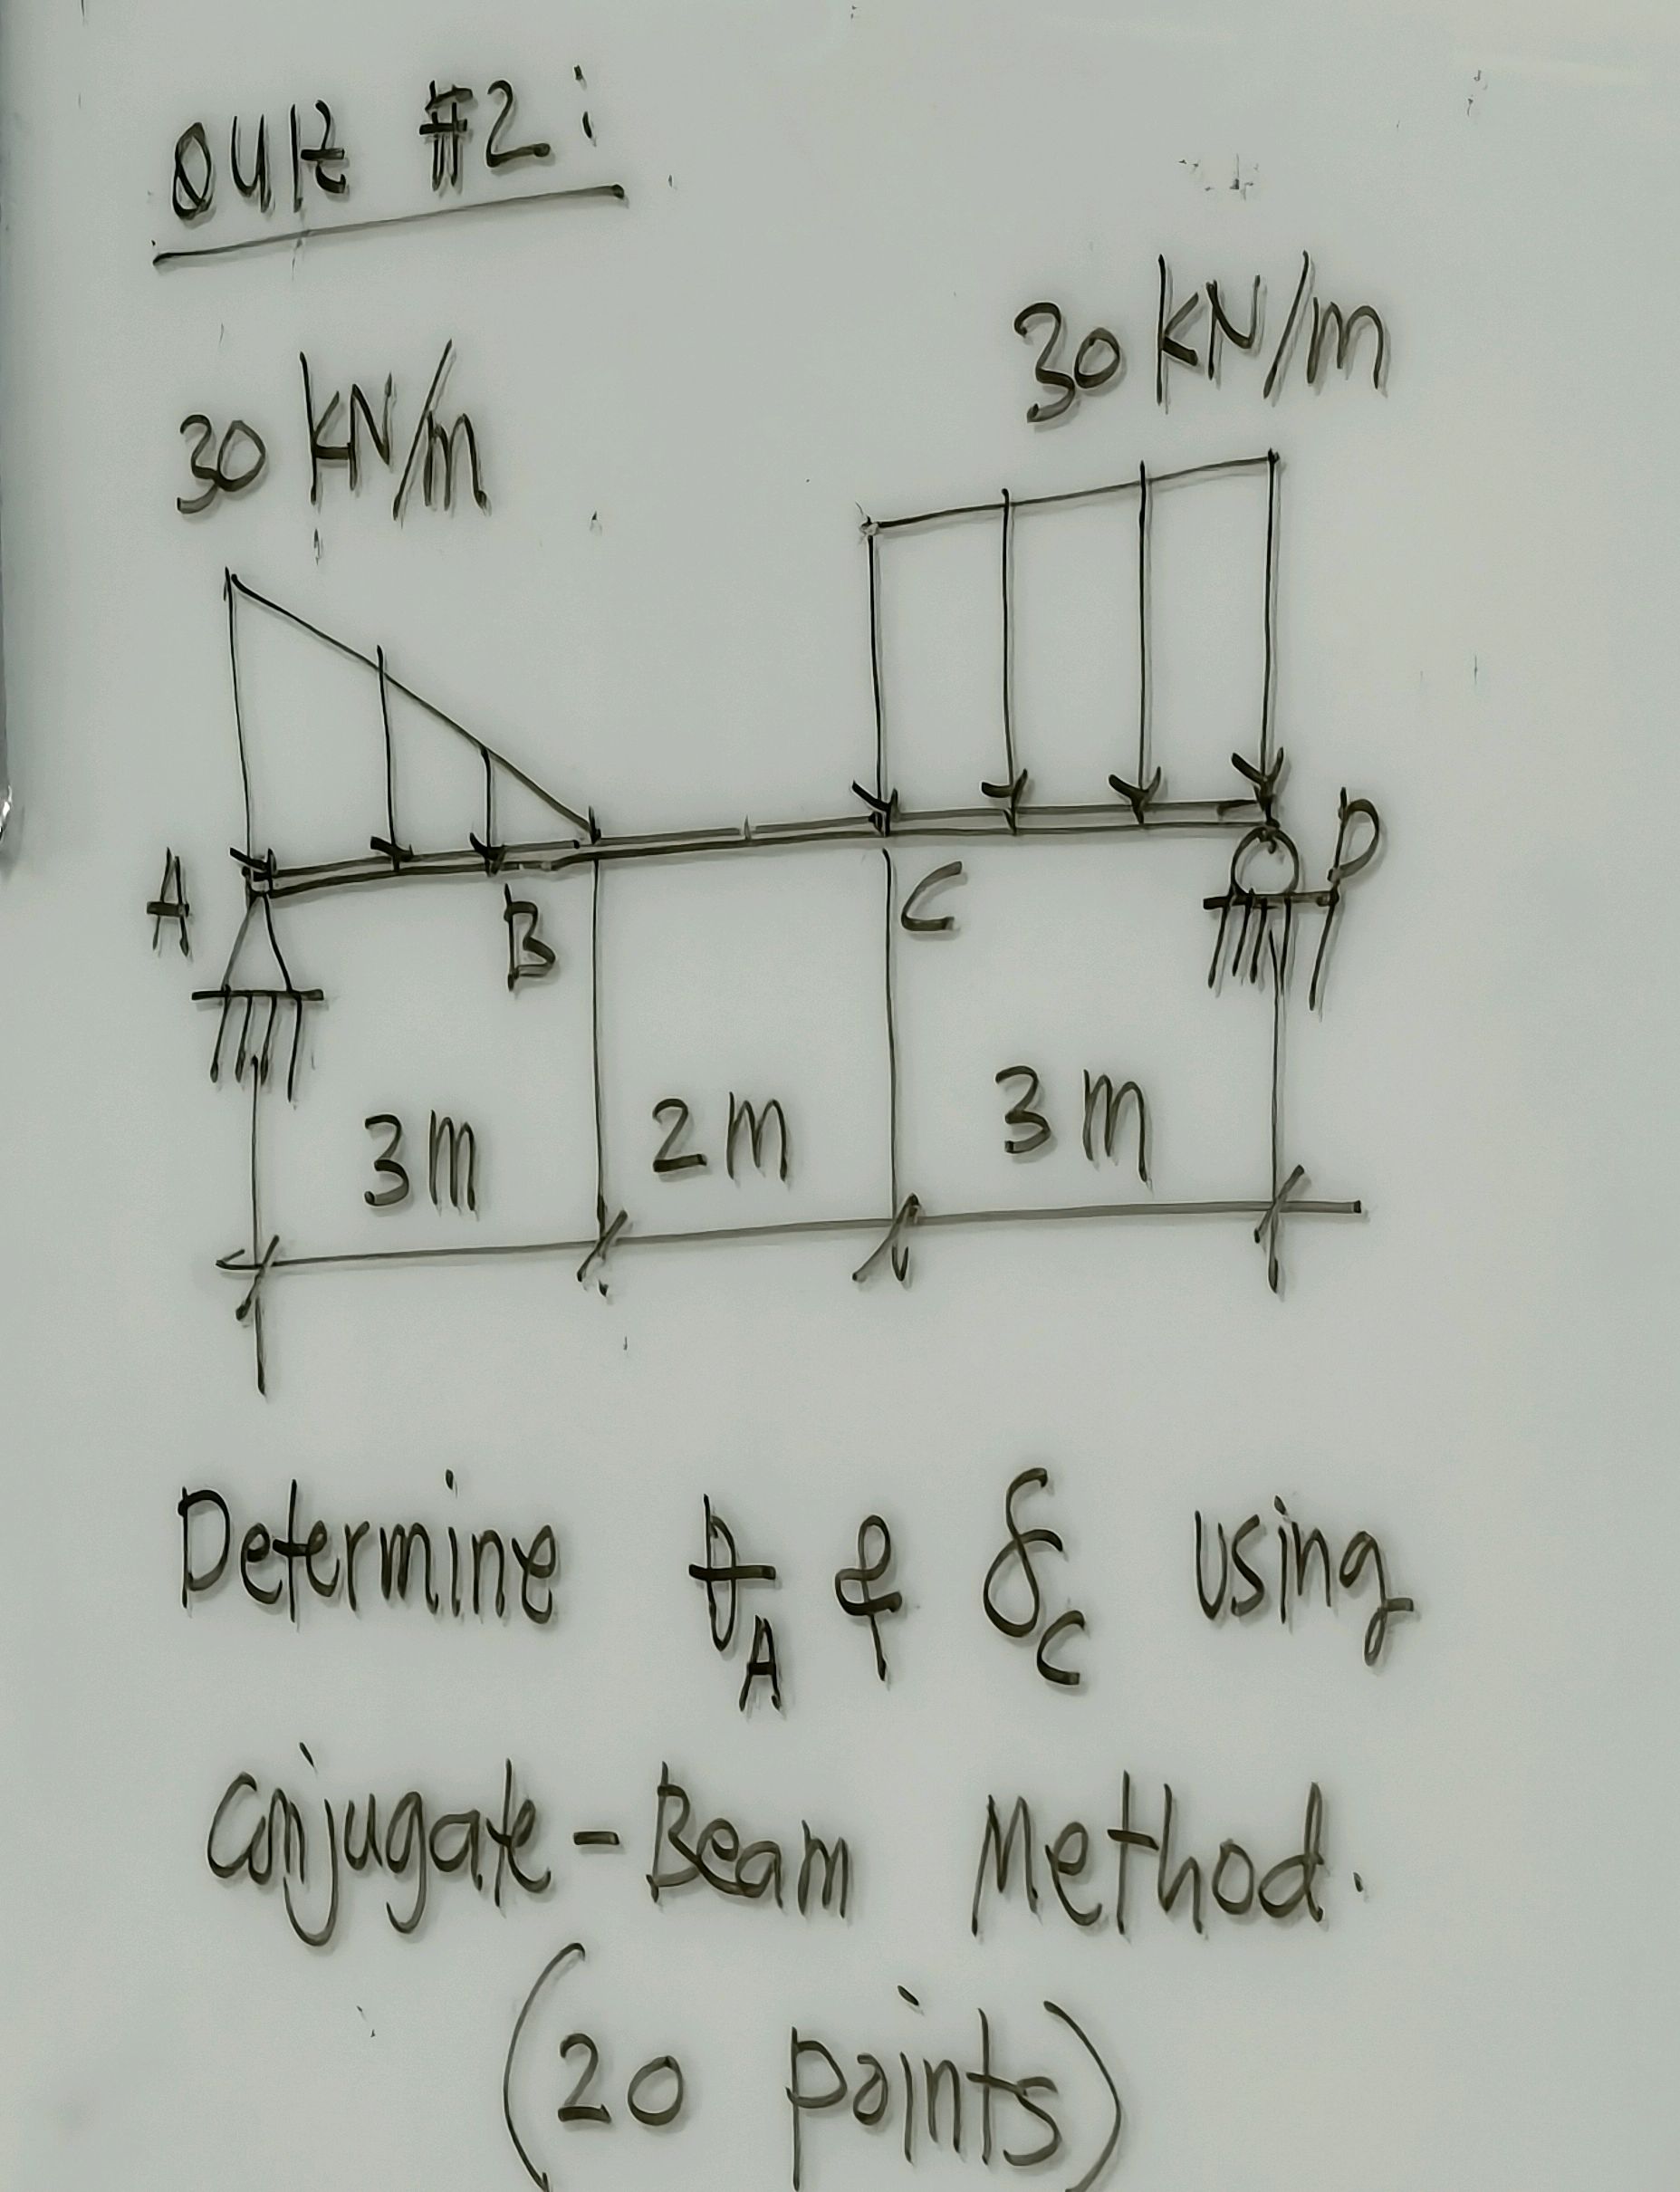 QUIZ #2:
30 KN/m
30 KN/m
A
B
C
D
3m
2m
3m
Determine θA & δC using
Conjugate-Beam Method.
(20 points)